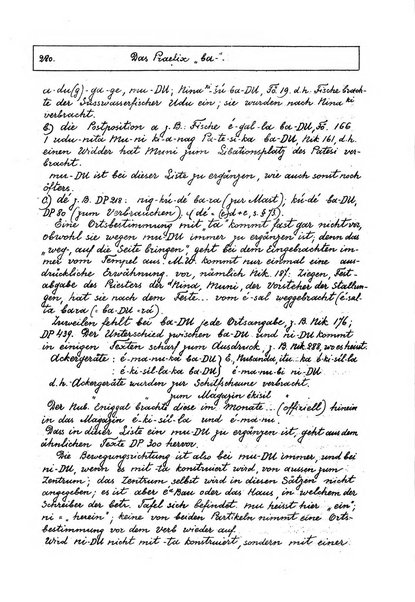 280. Das Praefix „ba-".
a-du(g)-ga-ge, mu-DU; Nina ki-šú ba-DU, Fö 19. d.h. Fische brach-
te der Süsswasserfischer Udu ein; sie wurden nach Nina ki
verbracht.
b) die Postposition a z.B.: Fische é-gal-la ba-DU, Fö. 166
1 udu-nitá Mu-ni k-a-nag Pa-te-si-ka ba-DU, Nik 161, d.h.
einen Widder hat Muni zum Libationsplatz des Patesi ver-
bracht.
mu-DU ist bei dieser Liste zu ergänzen, wie auch sonst noch
öfters.
c) dé z.B. DP 218: nig-kú-dé ba-ra (zur Mast); kú-dé ba-DU,
DP 80 (zum Verbrauchen). (dé = e, s. § 75).
Eine Ortsbestimmung mit „ta" kommt fast gar nicht vor,
obwohl sie wegen mu-DU immer zu ergänzen ist, denn das
„weg, auf die Seite bringen" geht bei dem Eingebrachten im-
mer vom Tempel aus. M.W. kommt nur einmal eine aus-
drückliche Erwähnung vor, nämlich Nik. 187: Ziegen, Fest-
abgabe des Priesters der Nina, Muni, der Vorsteher der Stallun-
gen, hat sie nach dem Feste... vom é-sal weggebracht (é-sal-
ta bara (= ba-DU-rá).
Zuweilen fehlt bei ba-DU jede Ortsangabe, z.B. Nik 176;
DP 439. Der Unterschied zwischen ba-DU und ni-DU kommt
in einigen Texten scharf zum Ausdruck, z.B. Nik 288, wo es heisst:
Ackergeräte : é-má-nu-ka ba-DU } E, Nubanda, itu..ka é-ki-sil-la
é-ki-sil-la-ka ba-DU } é-ma-nu-bi ni-DU
d.h. Ackergeräte wurden zur Schilfscheune verbracht.
" " zum Magazin ekisil "
Der Nub. Eniggal brachte diese im Monate...(offiziell) hinein
in das Magazin é-ki-sil-la und é-ma-nu.
Dass in dieser Liste eine mu-DU zu ergänzen ist, geht aus dem
ähnlichen Texte DP 300 hervor.
Die Bewegungsrichtung ist also bei mu-DU immer, und bei
ni-DU, wenn es mit ta konstruiert wird, von aussen zum
Zentrum; das Zentrum selbst wird in diesen Sätzen nicht
angegeben; es ist aber é-Bau oder das Haus, in welchem der
Schreiber der betr. Tafel sich befindet. mu heisst hier „ein";
ni = „herein"; keine von beiden Partikeln nimmt eine Orts-
bestimmung vor dem Verb wieder auf.
Wird ni-DU nicht mit -ta konstruiert, sondern mit einer